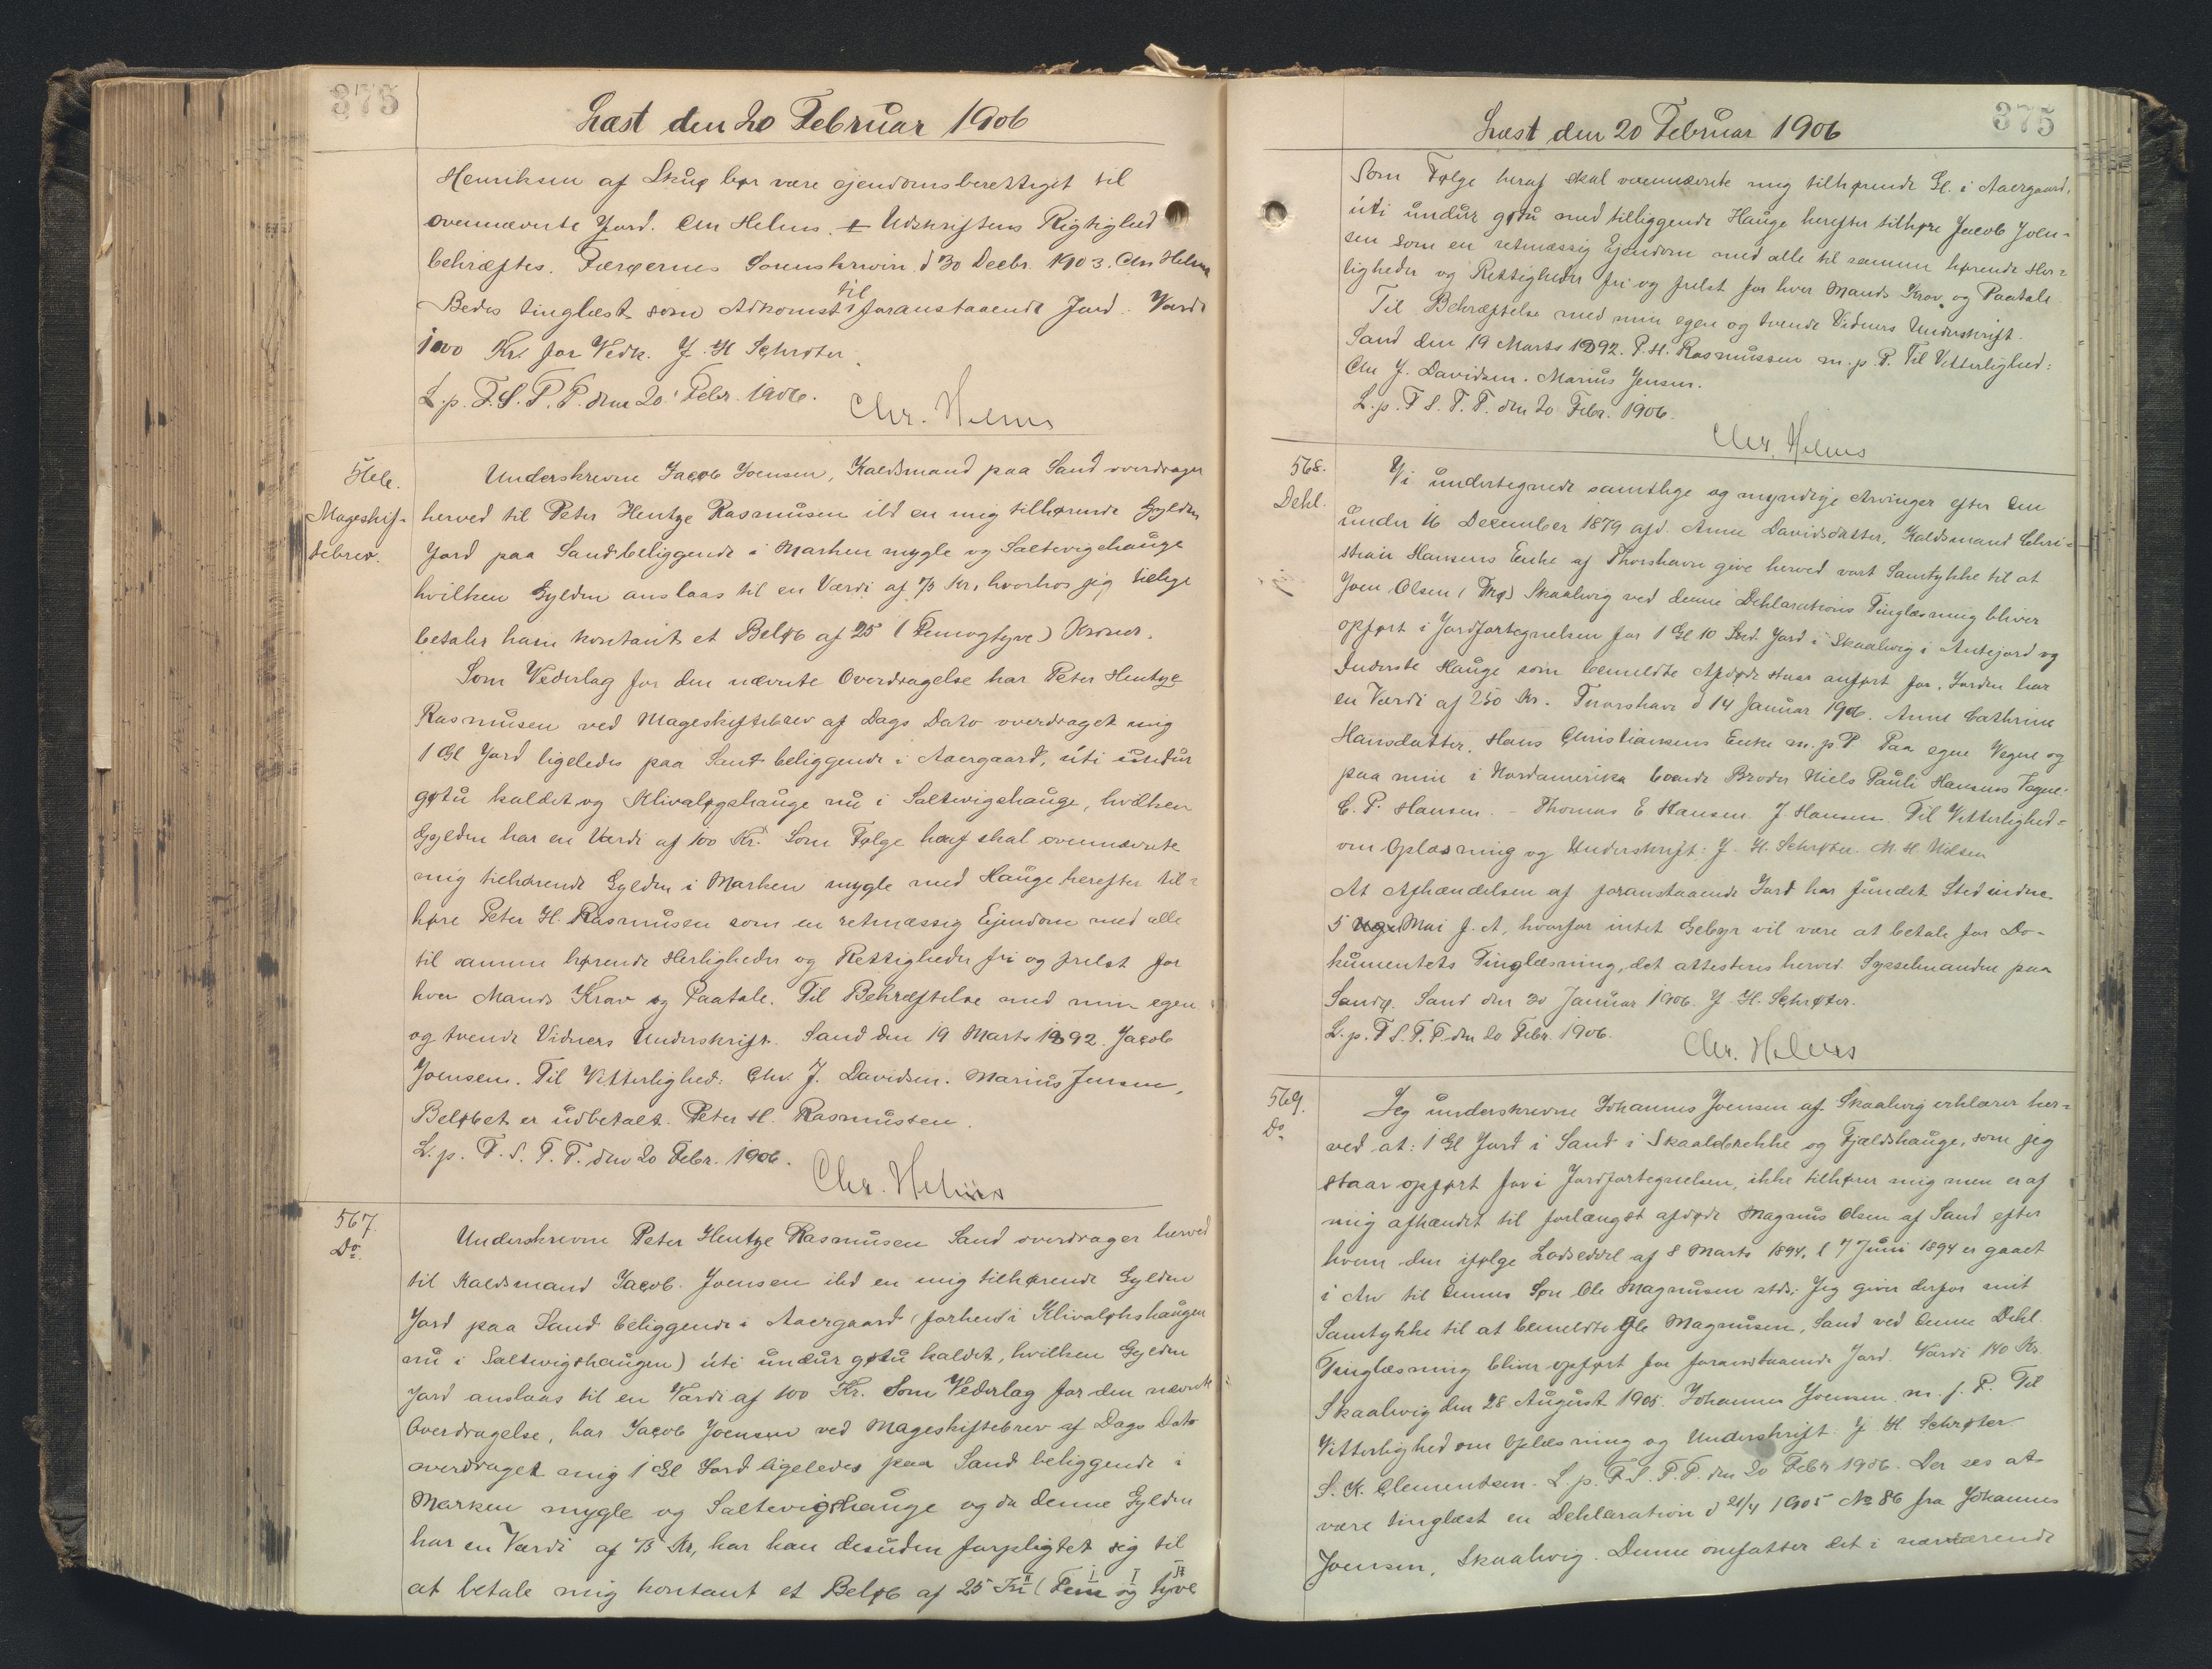 375
Læst den 20 Februar 1906
Henriksen af Skuø bør være ejendomsberettiget til
ovennævnte Jord. Chr Helms. Udskriftens Rigtighed
bekræftes. Færøernes Sorenskriveri, d 30 Decbr. 1903. Chr Helms
Bedes tinglæst som Adkomst til foranstaaende Jord. Værdi
1000 Kr. for Vedk. J. H Schrøter.
L. p. F. S. T. P. den 20' Febr. 1906.
Chr. Helms
566.
Mageskif-
tebrev.
Underskrevne Jacob Joensen, Kaldsmand paa Sand overdrager
herved til Peter Hentze Rasmussen ibd en mig tilhørende Gylden
Jord paa Sand beliggende i Marken mygle og Saltevigshauge
hvilken Gylden anslaas til en Værdi af 75 Kr, hvorhos jeg tillige
betaler ham kontant et Beløb af 25 (Femogtyve) Kroner.
Som Vederlag for den nævnte Overdragelse har Peter Hentze
Rasmusen ved Mageskiftebrev af Dags Dato overdraget mig
1 Gl Jord ligeledes paa Sand beliggende i Aaergaard, úti undur
gøtu kaldet og Klivaløgshauge nu i Saltevigshauge, hvilken
Gylden har en Værdi af 100 Kr. Som Følge heraf skal ovennævnte
mig tilhørende Gylden i Marken mygle med Hauge herefter til-
høre Peter H. Rasmusen som en retmæssig Ejendom med alle
til samme hørende Herligheder og Rettigheder fri og frelst for
hver Mands Krav og Paatale. Til Bekræftelse med min egen
og tvende Vidners Underskrift. Sand den 19 Marts 1892. Jacob
Joensen. Til Vitterlighed: Chr. J. Davidsen. Marius Jensen,
Beløbet er udbetalt. Peter H. Rasmussen.
L. p. F. S. T. P. den 20 Febr. 1906.
Chr. Helms
567.
Do.
Underskrevne Peter Hentze Rasmusen Sand overdrager herved
til Kaldsmand Jacob Joensen ibd en mig tilhørende Gylden
Jord paa Sand beliggende i Aaergaard (forhen i Klivaløkshaugen
nu i Saltevigshaugen) úti undur gøtu kaldet, hvilken Gylden
Jord anslaas til en Værdi af 100 Kr. Som Vederlag for den nævnte
Overdragelse, har Jacob Joensen ved Mageskiftebrev af Dags Dato
overdraget mig 1 Gl Jord ligeledes paa Sand beliggende i
Marken mygle og Saltevigshauge og da denne Gylden
har en Værdi af 75 Kr, har han desuden forpligtet sig til
at betale mig kontant et Beløb af 25 Kr (Fem og tyve
375
Læst den 20 Februar 1906
Som Følge heraf skal ovennævnte mig tilhørende Gl. i Aaergaard,
úti undur gøtu med tilliggende Hauge herefter tilhøre Jacob Joen-
sen som en retmæssig Ejendom med alle til samme hørende Her-
ligheder og Rettigheder fri og frelst for hver Mands Krav og Paatale
Til Bekræftelse med min egen og tvende Vidners Underskrift.
Sand den 19 Marts 1892. P. H. Rasmussen m. p. P. Til Vitterlighed:
Chr J. Davidsen. Marius Jensen.
L. p. F S. T. P. den 20 Febr. 1906.
Chr. Helms
568.
Dekl.
Vi undertegnede samtlige og myndige Arvinger efter den
under 16 December 1879 afd. Anne Davidsdatter, Kaldsmand Chri-
stian Hansens Enke af Thorshavn give herved vort Samtykke til at
Joen Olsen (Trø) Skaalvig ved denne Deklarations Tinglæsning bliver
opført i Jordfortegnelsen for 1 Gl 10 Skd. Jord i Skaalvig i Antejord og
Inderste Hauge som bemeldte Afdøde staar anført for. Jorden har
en Værdi af 250 Kr. Thorshavn d 14 Januar 1906. Anne Cathrine
Hansdatter, Hans Christiansens Enke m. p P. Paa egne Vegne og
paa min i Nordamerika boende Broder Niels Pauli Hansens Vegne:
C. P. Hansen. - Thomas E Hansen. J. Hansen. Til Vitterlighed-
om Oplæsning og Underskrift: J. H. Schrøter. M. H Nilsen
At Afhændelsen af foranstaaende Jord har fundet Sted inden
5 Mai f. A, hvorfor intet Gebyr vil være at betale for Do-
kumentets Tinglæsning, det attesteres herved. Sysselmanden paa
Sandø. Sand den 30 Januar 1906. J. H. Schrøter.
L. p. F S. T. P. den 20 Febr. 1906.
Chr. Helms
569.
Do
Jeg underskrevne Johannes Joensen af Skaalvig erklærer her-
ved at: 1 Gl Jord i Sand i Skaalebrekke og Fjældshauge, som jeg
staar opført for i Jordfortegnelsen, ikke tilhører mig men er af
mig afhændet til forlængst afdøde Magnus Olsen af Sand efter
hvem den ifølge Lodseddel af 8 Marts 1894, l 7 Juni 1894 er gaaet
i Arv til dennes Søn Ole Magnusen stds: Jeg giver derfor mit
Samtykke til at bemeldte Ole Magnusen, Sand ved denne Dekl.
Tinglæsning bliver opført for foranstaaende Jord. Værdi 140 Kr.
Skaalvig den 28 August 1905. Johannes Joensen m. f. P. Til
Vitterlighed om Oplæsning og Underskrift: J. H. Schrøter
S. K. Clementsen. L. p. F. S. T. P. den 20 Febr 1906. Der ses at
være tinglæst en Deklaration d 21/4 1905 No 86 fra Johannes
Joensen, Skaalvig. Denne omfatter det i nærværende